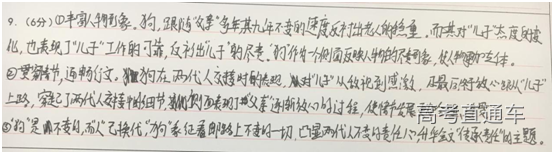 9.(6分)①丰富人物形象。狗,跟随"父亲"多年其九年不变的速度反衬出老人的稳重,而其对"儿子"态度的变
化,也表现了"儿子"工作的可靠,反衬出"儿子"的尽责。"狗"作为一个侧面反映人物的不变形象,使人物更加立体。
②贯穿情节,逐畅行文。狗在两代人交接时的表现,从对"儿子"从敌视到感激,再最后的放心跟从"儿子"
上路,穿起了两代人交接中的细节,表现了"父亲"逐渐放心的过程,使情节发展
③"狗"是不变的,而"人"已换代,"狗"象征着邮路上不变的一切,凸显两代人不变的责任心,升华全文"传承责任"的主题。
高考直通车